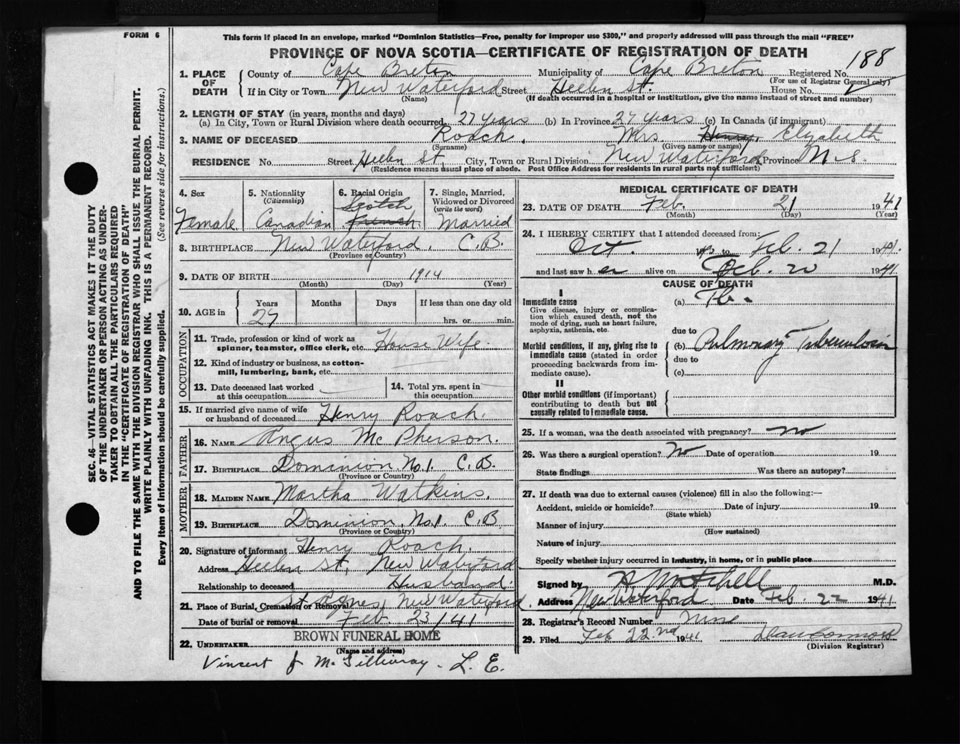 FORM 6
This form if placed in an envelope, marked "Dominion Statistics—Free, penalty for improper use $300," and properly addressed will pass through the mail "FREE"
PROVINCE OF NOVA SCOTIA—CERTIFICATE OF REGISTRATION OF DEATH
188
1. PLACE OF DEATH
County of Cape Breton Municipality of Cape Breton Registered No.
(For use of Registrar General only)
If in City or Town New Waterford Street Heelen St. House No.
(Name) (If death occurred in a hospital or institution, give the name instead of street and number)
2. LENGTH OF STAY (in years, months and days)
(a) In City, Town or Rural Division where death occurred 27 years (b) In Province 27 years (c) In Canada (if immigrant)
3. NAME OF DECEASED Roach, Mrs Henry Elizabeth
(Surname) (Given name or names)
RESIDENCE No. Street Heelen St, City, Town or Rural Division New Waterford Province N.S.
(Residence means usual place of abode. Post Office Address for residents in rural parts not sufficient)
4. Sex
Female
5. Nationality
(Citizenship)
Canadian
6. Racial Origin
Scotch
French
7. Single, Married, Widowed or Divorced
(write the word)
Married
8. BIRTHPLACE New Waterford, C.B.
(Province or Country)
9. DATE OF BIRTH 1914
(Month) (Day) (Year)
10. AGE in
Years
27
Months
Days
If less than one day old
hrs. or min.
OCCUPATION
11. Trade, profession or kind of work as spinner, teamster, office clerk, etc. House Wife
12. Kind of industry or business, as cotton-mill, lumbering, bank, etc.
13. Date deceased last worked at this occupation
14. Total yrs. spent in this occupation
15. If married give name of wife or husband of deceased Henry Roach.
FATHER
16. NAME Angus McPherson.
17. BIRTHPLACE Dominion No.1. C.B.
(Province or Country)
MOTHER
18. MAIDEN NAME Martha Watkins.
19. BIRTHPLACE Dominion, No.1. C.B
(Province or Country)
20. Signature of informant Henry Roach.
Address Heelen St, New Waterford
Relationship to deceased Husband.
21. Place of Burial, Cremation or Removal St Agnes, New Waterford.
Date of burial or removal Feb. 23/41
22. UNDERTAKER BROWN FUNERAL HOME
(Name and address)
Vincent J McGillivray - L.E.
MEDICAL CERTIFICATE OF DEATH
23. DATE OF DEATH Feb. 21 1941
(Month) (Day) (Year)
24. I HEREBY CERTIFY that I attended deceased from:
Oct. to Feb. 21 1941.
and last saw her alive on Feb. 20 1941
CAUSE OF DEATH
I
Immediate cause
Give disease, injury or complication which caused death, not the mode of dying, such as heart failure, asphyxia, asthenia, etc.
(a) Tb.
due to
Morbid conditions, if any, giving rise to immediate cause (stated in order proceeding backwards from immediate cause).
(b) Pulmonary Tuberculosis
due to
(c)
II
Other morbid conditions (if important) contributing to death but not causally related to immediate cause.
25. If a woman, was the death associated with pregnancy? no
26. Was there a surgical operation? No Date of operation 19
State findings Was there an autopsy?
27. If death was due to external causes (violence) fill in also the following:—
Accident, suicide or homicide? Date of injury 19
(State which)
Manner of injury
(How sustained)
Nature of injury
Specify whether injury occurred in industry, in home, or in public place
Signed by M.D.
Address New Waterford Date Feb. 22 1941
28. Registrar's Record Number
29. Filed Feb 22nd 1941
(Division Registrar)
SEC. 46—VITAL STATISTICS ACT MAKES IT THE DUTY
OF THE UNDERTAKER OR PERSON ACTING AS UNDER-
TAKER TO OBTAIN ALL THE PARTICULARS REQUIRED
IN THE "CERTIFICATE OF REGISTRATION OF DEATH"
AND TO FILE THE SAME WITH THE DIVISION REGISTRAR WHO SHALL ISSUE THE BURIAL PERMIT.
WRITE PLAINLY WITH UNFADING INK. THIS IS A PERMANENT RECORD.
Every item of Information should be carefully supplied. (See reverse side for instructions.)